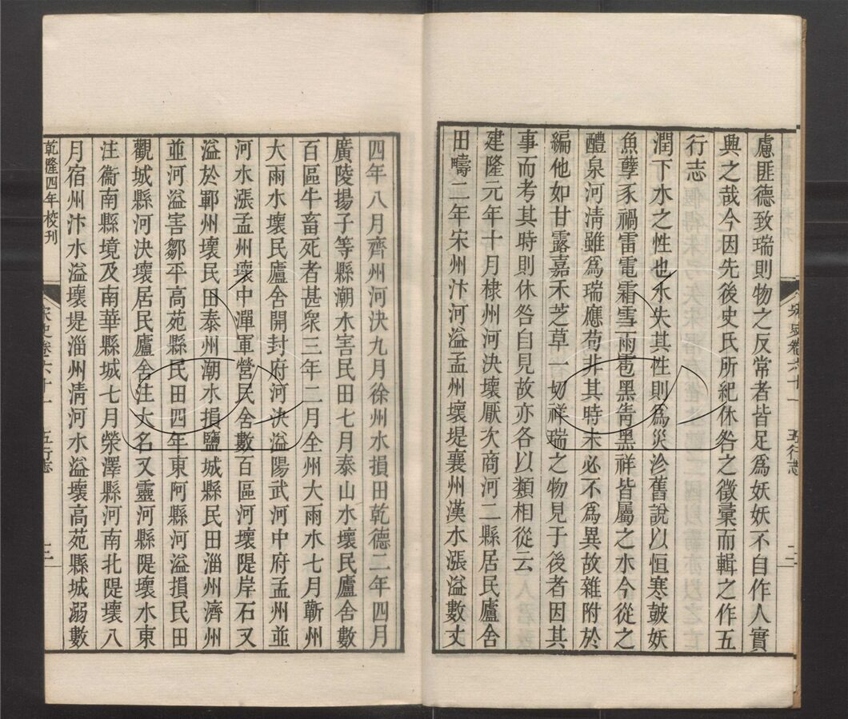 慮匪德致瑞則物之反常者皆足爲妖妖不自作人實
典之哉今因先後史氏所紀休咎之徵彙而輯之作五
行志
潤下水之性也水失其性則爲災沴舊說以恒寒鼓妖
魚孽豕禍雷電霜雪雨雹黑眚黑祥皆屬之水今從之
醴泉河淸雖爲瑞應苟非其時未必不爲異故雜附於
編他如甘露嘉禾芝草一切祥瑞之物見于後者因其
事而考其時則休咎自見故亦各以類相從云
建隆元年十月棣州河決壞厭次商河二縣居民廬舍
田疇二年宋州汴河溢孟州壞堤襄州漢水漲溢數丈
宋史卷六十一 五行志 二
四年八月齊州河決九月徐州水損田乾德二年四月
廣陵揚子等縣潮水害民田七月泰山水壞民廬舍數
百區牛畜死者甚衆三年二月全州大雨水七月蘄州
大雨水壞民廬舍開封府河決溢陽武河中府孟州並
河水漲孟州壞中潬軍營民舍數百區河壞隄岸石又
溢於鄆州壞民田泰州潮水損鹽城縣民田淄州濟州
並河溢害鄒平高苑縣民田四年東阿縣河溢損民田
觀城縣河決壞居民廬舍注大名又靈河縣隄壞水東
注衞南縣境及南華縣城七月榮澤縣河南北隄壞八
月宿州汴水溢壞堤淄州淸河水溢壞高苑縣城溺數
乾隆四年校刊
宋史卷六十一 五行志 三